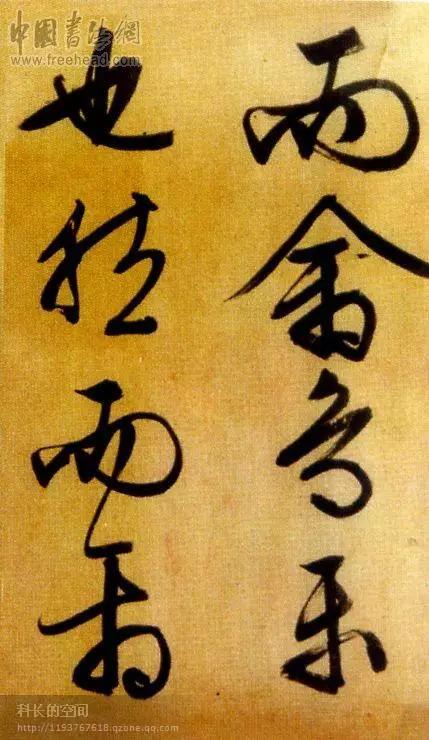 中國書法網
www.freehead.com
而禽鳥樂
也然而禽
科长的空间
http://1193767618.qzone.qq.com